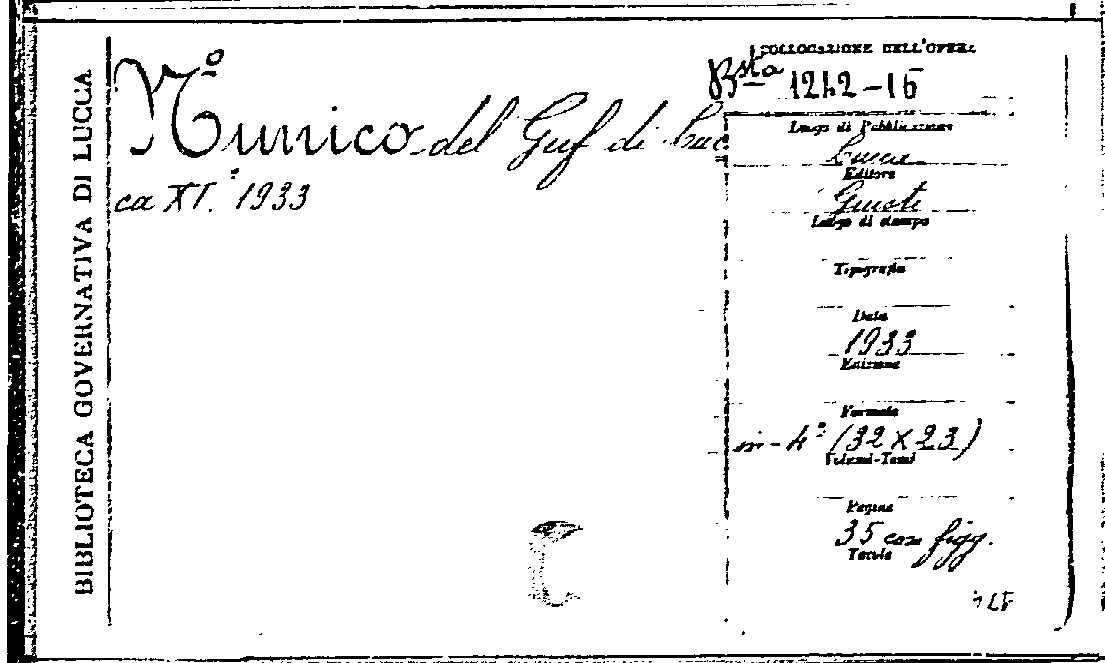 BIBLIOTECA GOVERNATIVA DI LUCCA
Nº unico del Guf di Luc=
ca XI.º 1933
COLLOCAZIONE DELL'OPERA
Bsta 1242-16
Luogo di Pubblicazione
Lucca
Editore
Giusti
Luogo di stampa
Tipografia
Data
1933
Edizione
Formato
in-4º (32 X 23)
Volumi-Tomi
Pagine
35 con figg.
Tavole